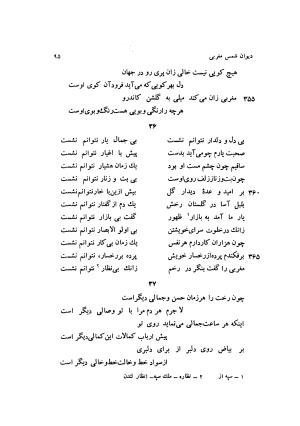 دیوان شمس مغربی ۹۵
هیچ کویی نیست خالی زان پری رو در جهان
دل بهر کویی که می‌آید فرود آن کوی اوست
۳۵۵ مغربی زان می‌کند میلی به گلشن کاندرو
هرچه را رنگی و بویی هست رنگ و بوی اوست
۳۶
بی دل و دلدار نتوانم نشست بی جمال یار نتوانم نشست
صحبت یارم چو می‌آید بدست پیش با اغیار نتوانم نشست
چون که چشم مست او بود یك زمان هشیار نتوانم نشست
چون بت و زنار زلف روی اوست بی بت و زنار نتوانم نشست
۳۶۰ بر امید وعدهٔ دیدار گل بیش ازین با خار نتوانم نشست
بلبل آسا در گلستان رخش یك دم از گفتار نتوانم نشست
یار ما آمد به بازار۱ ظهور گفت بی بازار نتوانم نشست
زانك در خلوت سرای خویشتن بی اولو الابصار نتوانم نشست
چون هزاران کار دارم هر نفس یك زمان بی کار نتوانم نشست
۳۶۵ برفکندم پرده از رخسار خویش پرده بر رخسار نتوانم نشست
مغربی را گفت بنگر در رخم زانك بی‌نظار۲ نتوانم نشست
۳۷
چون رخت را هر زمان حسن و جمالی دیگر است
لا جرم هر دم مرا با تو وصالی دیگر است
اینکه هر ساعت جمالی می‌نماید روی تو
پیش ارباب کمالات این کمالی دیگر است
بر بیاض روی دلبر از برای دلبری
از سواد خط و خالت خط و خالی دیگر است
۱ - سپه از. ۲ - نظاره - ملك سپه- انظار لندن